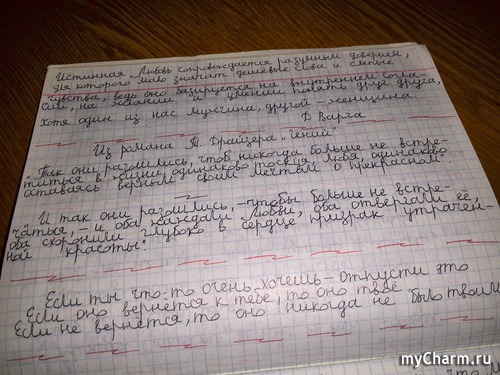 Истинная Любовь сопровождается разумным доверием,
для которого мало значат дешёвые слова и слепые
чувства, ведь оно базируется на внутреннем согла-
сии, на желании и умении понять друг друга,
хотя один из нас мужчина, другой - женщина
Д Варга
Из романа Т. Драйзера "Гений"
"Так они разошлись, чтоб никогда больше не встре-
титься в жизни, одинаково тоскуя, любя, одинаково
оставаясь верным своим мечтам о прекрасном".
И так они разошлись, - чтобы больше не встре-
чаться, - и оба жаждали Любви, оба отвергали её,
оба схоронили глубоко в сердце призрак утрачен-
ной красоты"
Если ты что-то очень хочешь - отпусти это
Если оно вернется к тебе, то оно твоё
Если не вернется, то оно никогда не было твоим
что
myCharm.ru